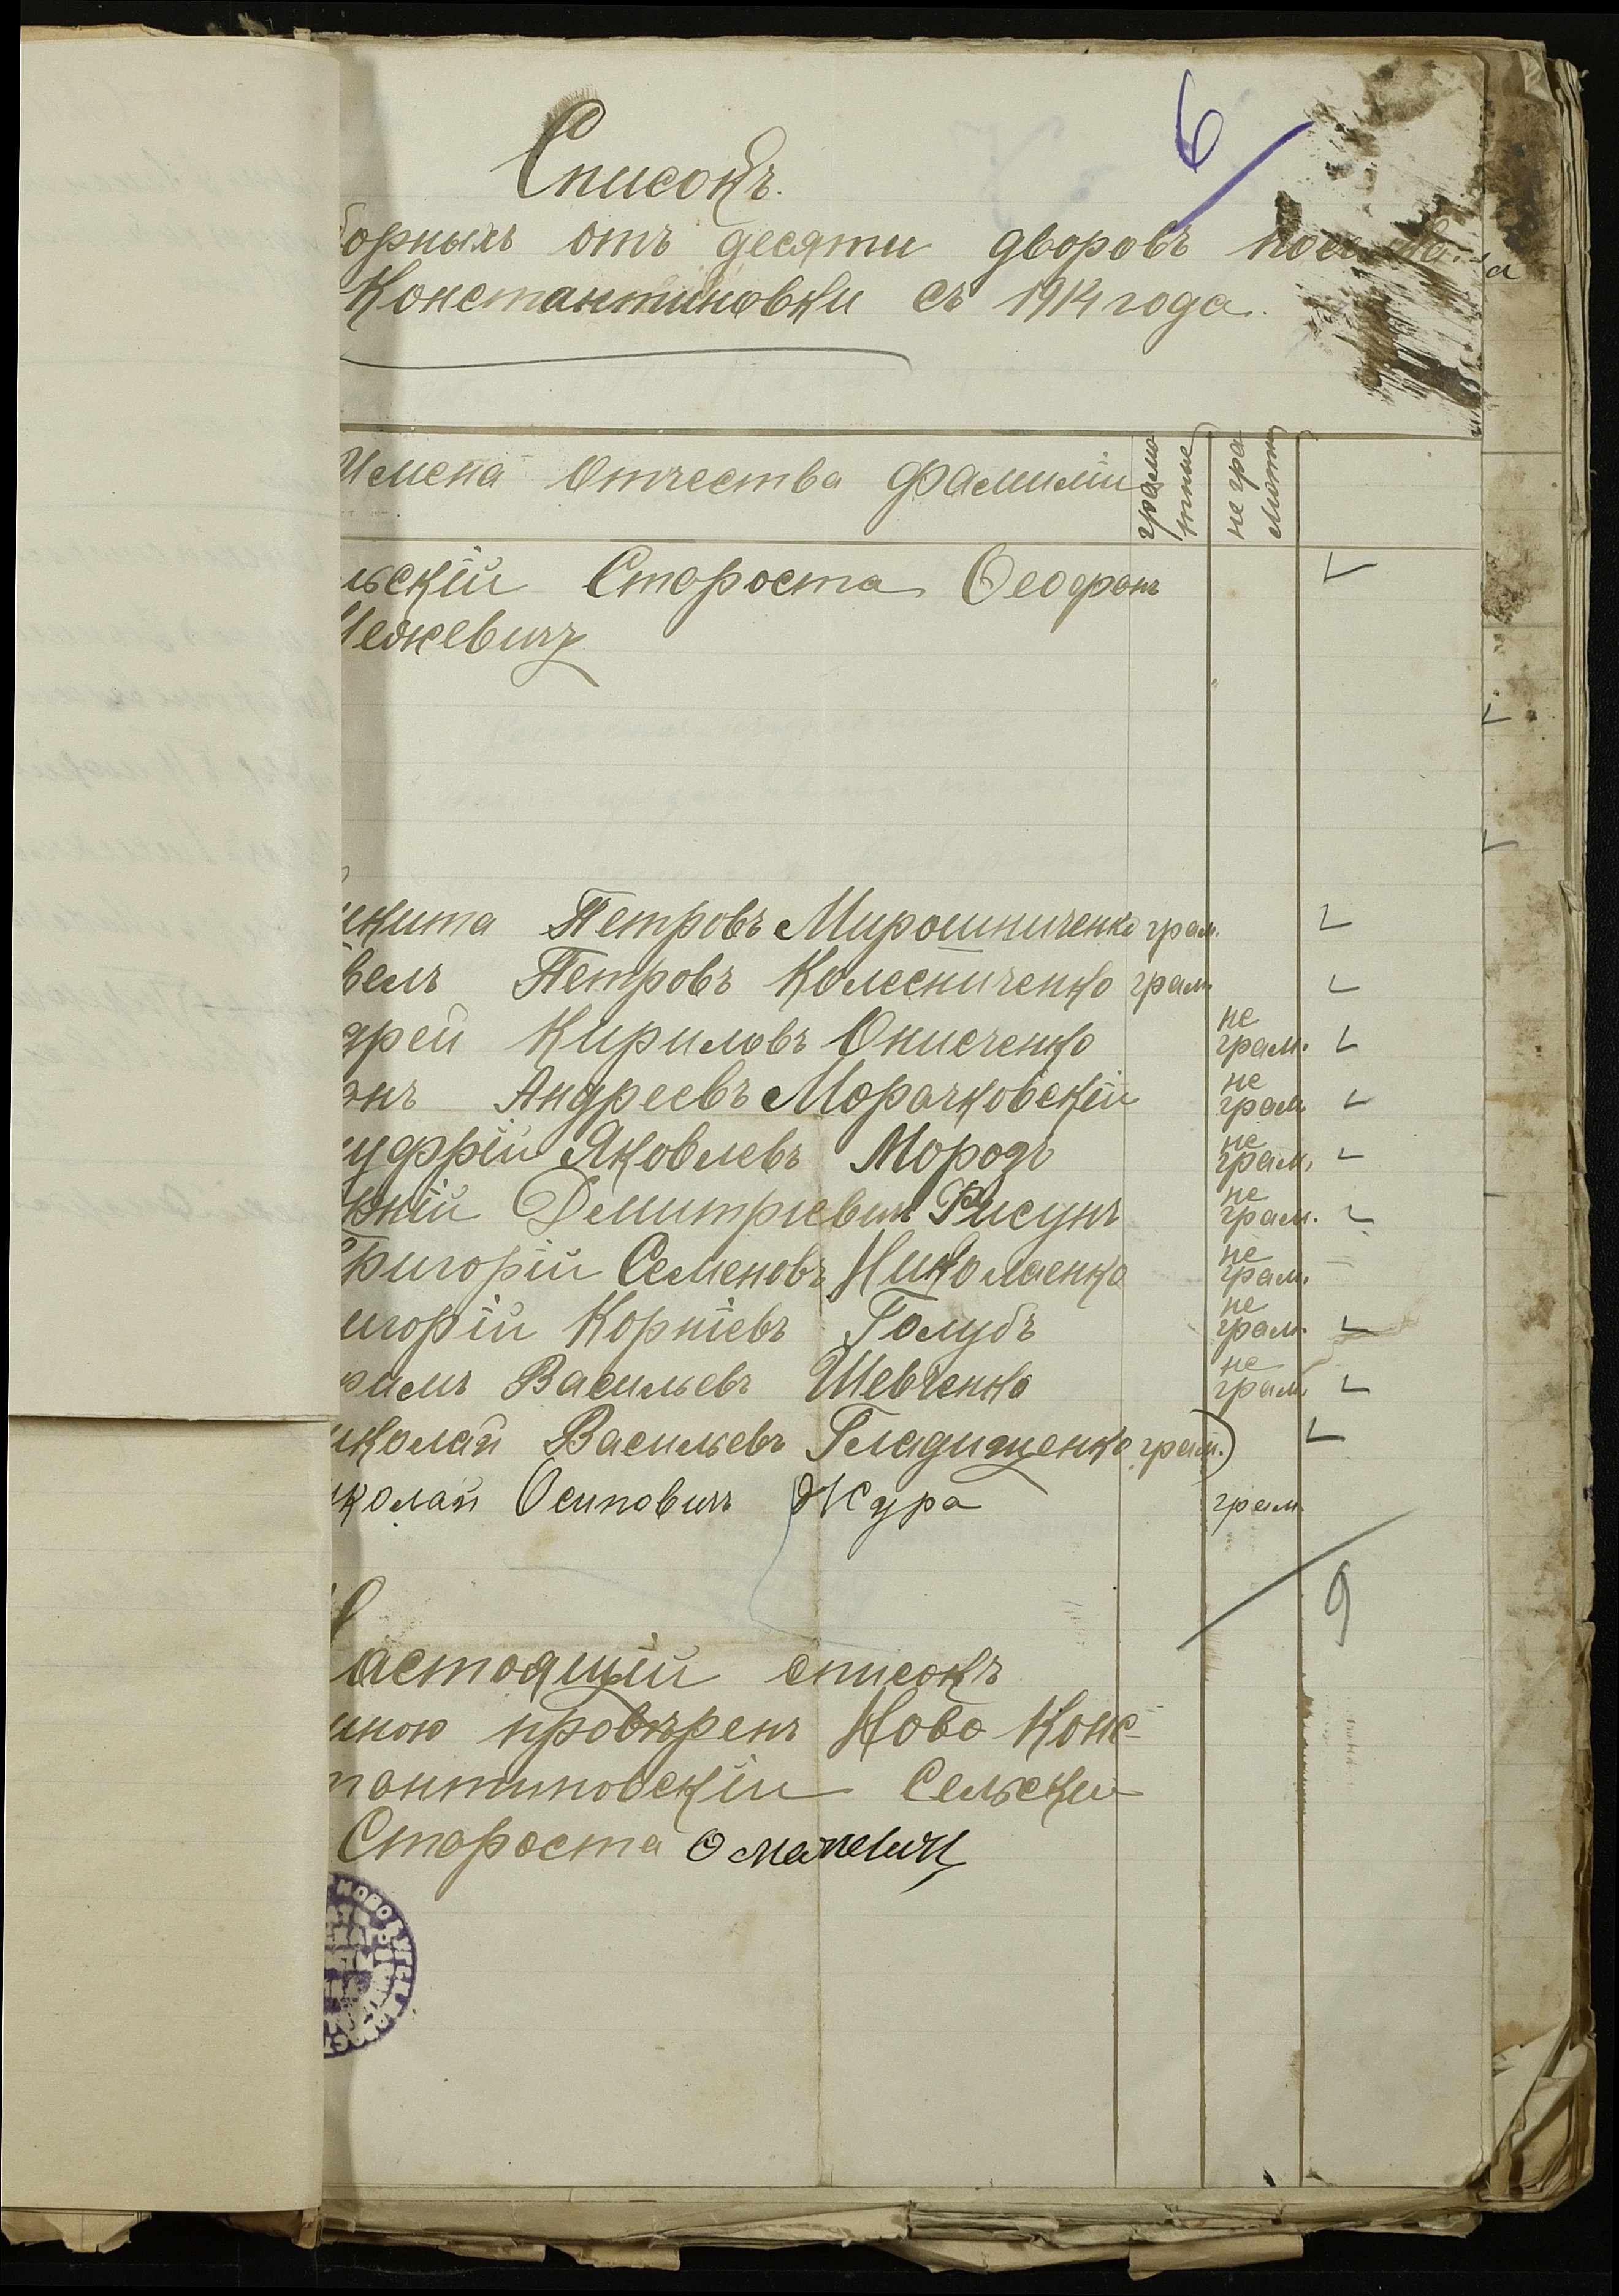 6
Списокъ.
борныхъ отъ десяти дворовъ
Константиновки съ 1914 года.
Имена Отчества Фамиліи
грамо
тные
не гра
мотн
льскій Староста Ѳеофонъ
Межевичъ
икита Петровъ Мирошниченко грам.
велъ Петровъ Колесниченко грам
дрей Кириловъ Онисченко не грам.
онъ Андреевъ Морачковскій не грам
уфрій Яковлевъ Морозъ не грам.
Дмитріевичъ Рисунъ не грам.
Григорій Семеновъ Николаенко не грам.
игорій Корніевъ Голубъ не грам
Васильевъ Шевченко не грам
иколай Васильевъ Гладищенко грам.)
иколай Осиповичъ Жура грам
9
астоящій списокъ
мною провѣренъ Ново Конс-
тантиновскій Сельскій
Староста